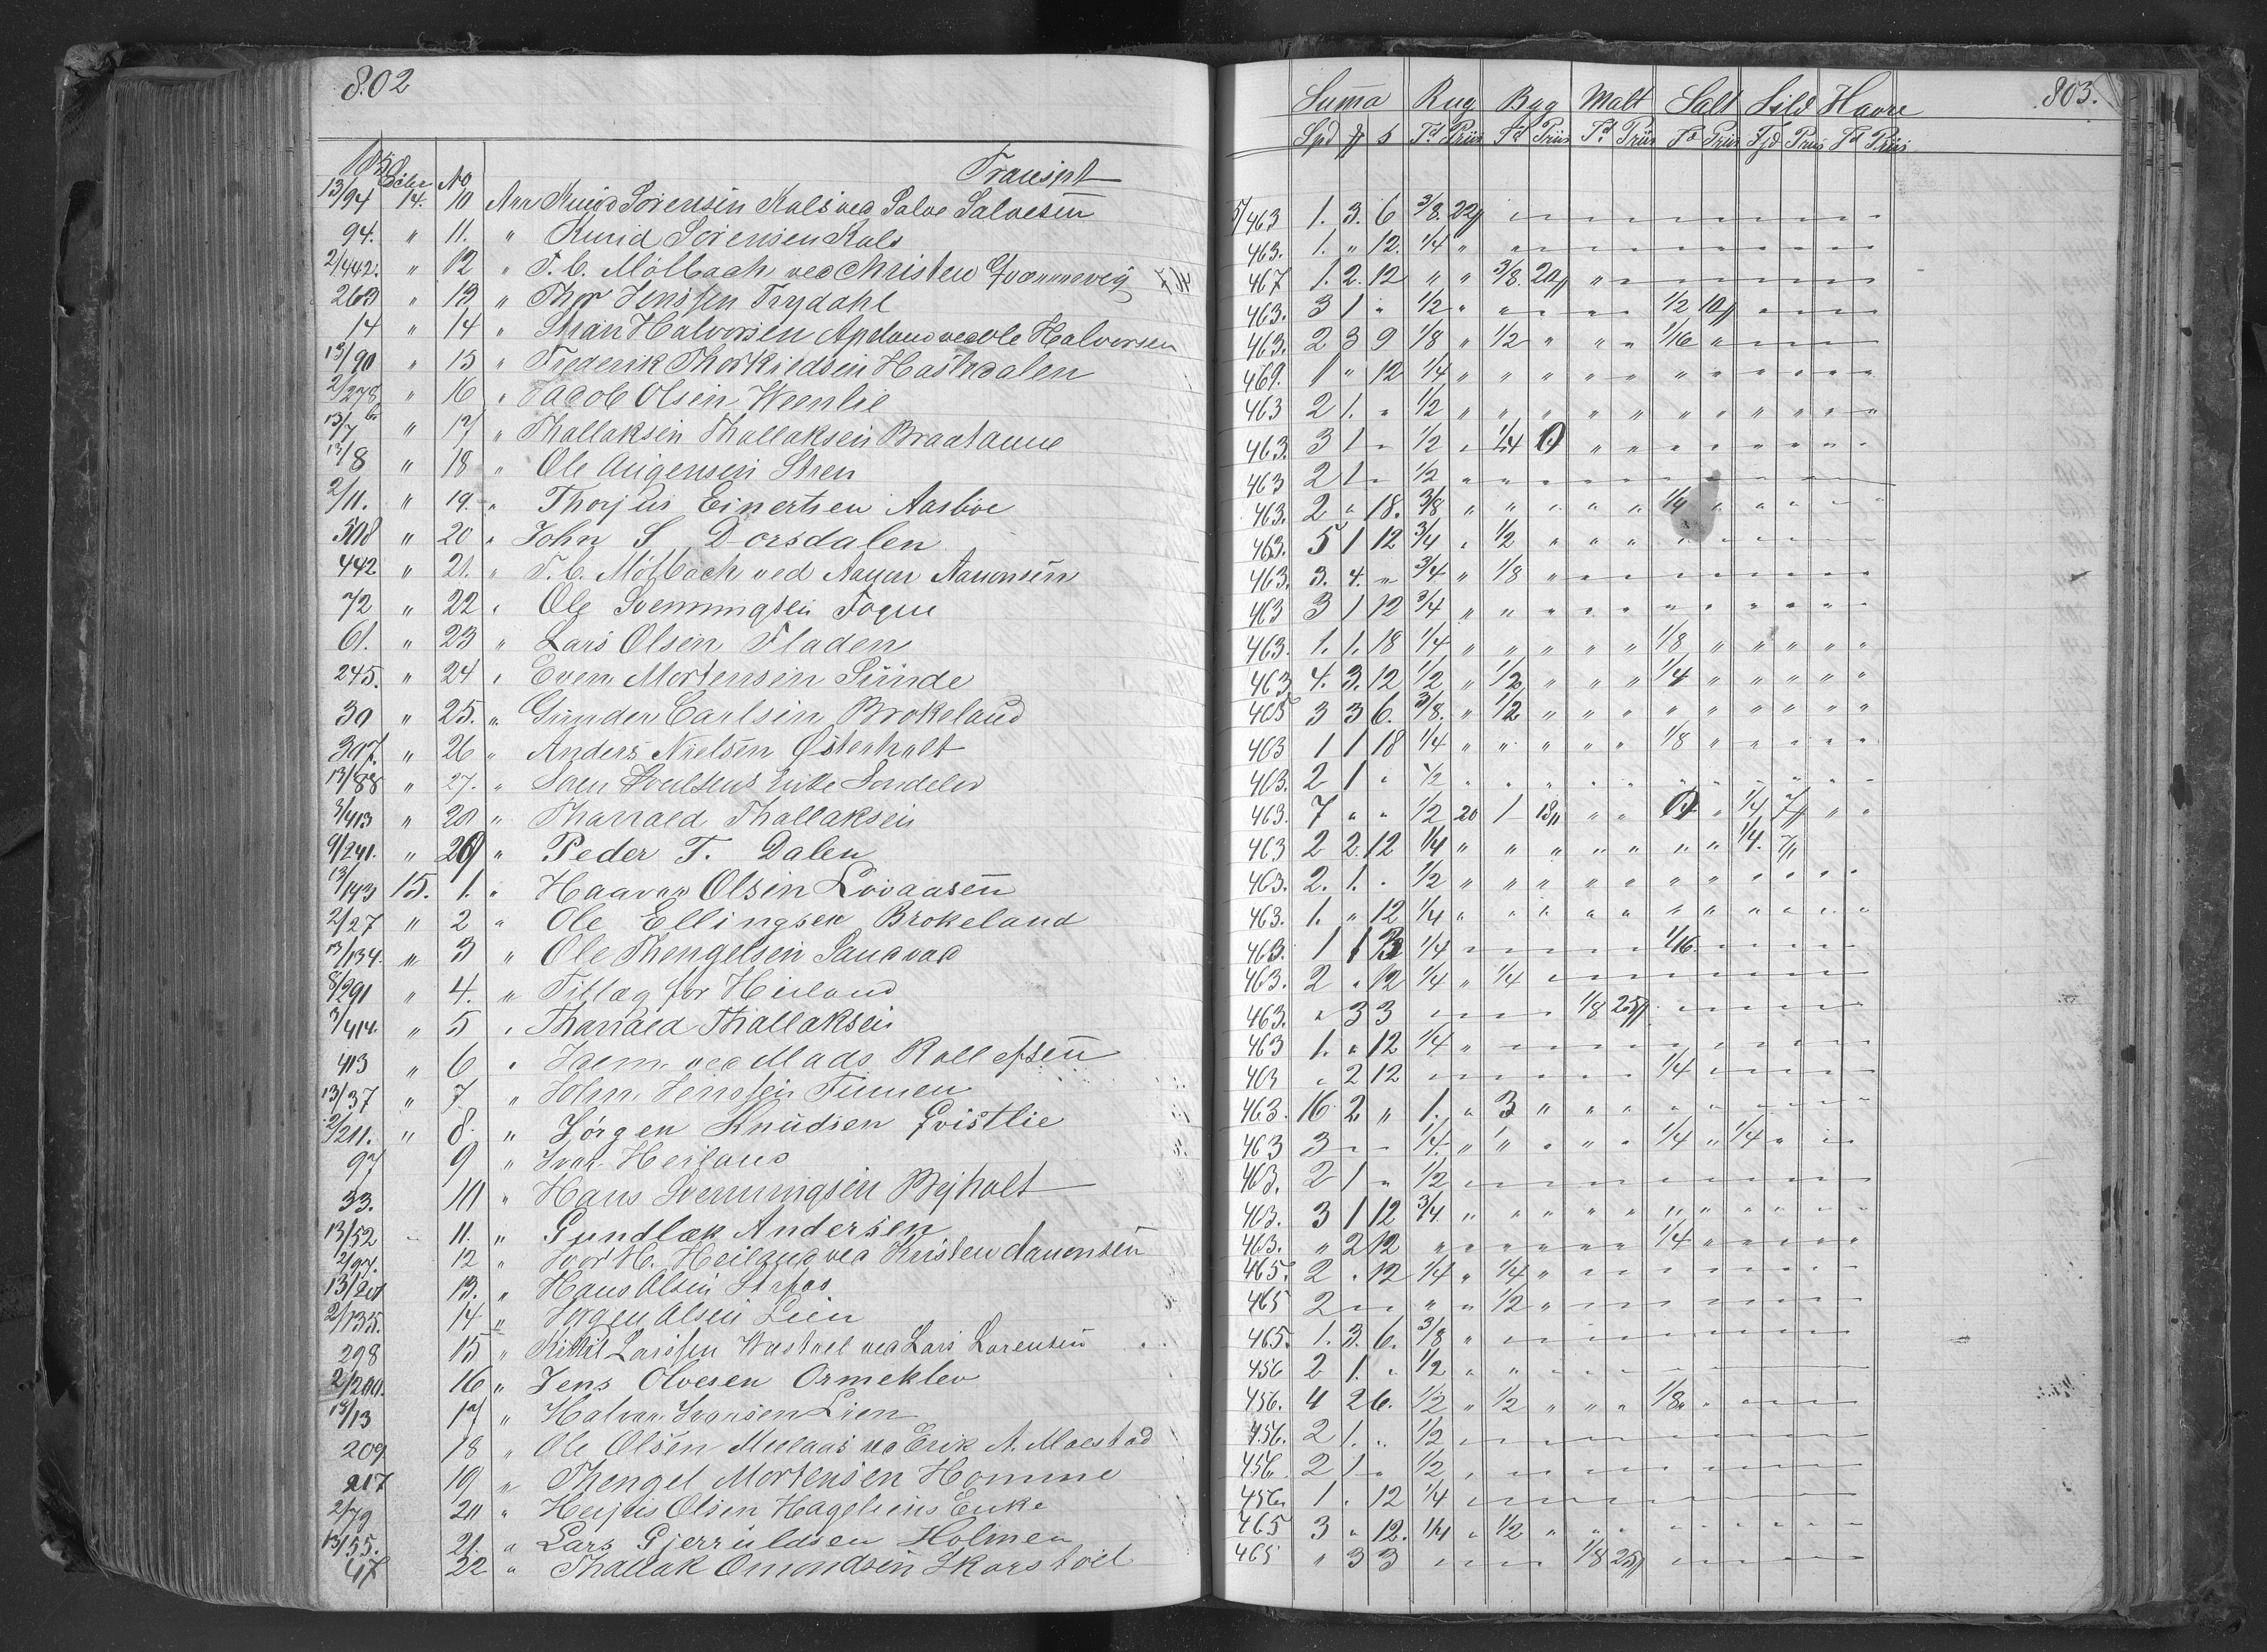 802
Transpt
1858 Octbr No
13/94 14. 10 Ann Knud Sørensen Kals ved Salve Salvesen
94. " 11. " Knud Sørensen Kals
2/442. " 12 " F. C. Mölbach ved Christen
263 " 13 " Thor Jenssen Trydahl
14 " 14 " Halvorsen Apeland ved Ole Halvorsen
13/90 " 15 " Frederik Thorkildsen Hasledalen
2/278 " 16 " Jacob Olsen Weenlie
13/7 " 17 " Thallaksen Thallaksen Braatanne
13/8 " 18 " Ole Augensen Stren
2/11. " 19. " Thorjus Einertsen Aasboe
508 " 20 " John S Dorsdalen
442 " 21. " F. C. Mölbach ved Aanon Aanonsen
72 " 22 " Ole Svenningsen Fogne
61. " 23 " Lars Olsen Fladen
245. " 24 " Even Mortensen Sunde
30 " 25. " Gunder Carlsen Brokeland
307. " 26 " Anders Nielsen Østerholt
13/88 " 27. " Enke Søndeled
3/413 " 28 " Tharald Thallaksen
9/241. " 29 " Peder T. Dalen
13/143 15. 1. " Haavor Olsen Lovaasen
2/27 " 2 " Ole Ellingsen Brokeland
13/134. " 3 " Ole Thengelsen Sandvad
8/291 " 4. " Tillæg for Heiland
3/414. " 5 " Tharald Thallaksen
413 " 6 " Idem ved Mads Rollefsen
13/37 " 7. " John Jenssen Tunnen
2/211. " 8. " Jørgen Knudsen Qvistlie
97 9 " Ivar Heiland
33. 10 " Hans Svenningsen Byholt
13/52 11. " Gundlæk Andersen
2/97. 12 " Ivar H. Heiland ved Kristen Aanonsen
13/20 13. " Hans Olsen
2/135. 14 " Jørgen Olsen Lien
298 15 " Kittil Larssen ved Lars Larensen
2/200. 16 " Jens Olvesen Ormeklev
13/13 17 " Halvor Ivarsen Lien
209 18 " Ole Olsen Meelaas ved Erik A. Moestad
217 19 " Thengel Mortensen Homme
2/79 20 " Herjus Olsen Hageliens Enke
13/55. 21. " Lars Gjerruldsen Holmen
47 22 " Thallak Omondsen Skarstöel
803.
Summa Rug Byg Malt Salt Sild Havre
Spd ₰ s Td Priis Td Priis Td Priis Td Priis Fjd Priis Td Priis
5/463 1. 3. 6 3/8. 22
463. 1. " 12. 1/4 "
467 1. 2. 12 " " 3/8. 20 "
463. 3 1 " 1/2 " 1/2 10
463. 2 3 9 1/8 " 1/2 " " " 1/16 "
469. 1 " 12 1/4 " " " " " " " " " " "
463 2 1. " 1/2 " " " " " " " " " " "
463. 3 1 " 1/2 " 1/4 " " " " " " " "
463 2 1 " 1/2 " " " "
463. 2 " 18. 3/8 " " " " " 1/4 " " " " "
463. 5 1 12 3/4 " 1/2 " " " "
463. 3. 4. " 3/4 " 1/8 " "
463 3 1 12 3/4 " " " " " " " " " " "
463. 1. 1. 18 1/4 " " " " " 1/8 " " " " "
463 4. 3. 12 1/2 " 1/2 " " " 1/4 " " " " "
465 3 3 6. 3/8. " 1/2 " " " " " " " " "
463 1 1 18 1/4 " " " " " 1/8 " " " " "
463. 2 1 " 1/2 " " " " " " " " " " "
463. 7 " " 1/2 20 1 18 " " " 1/4 7 " "
463 2 2. 12 1/4 " " " " " " " 1/4. 7
463. 2. 1. " 1/2 " " " " " " " " " " "
463. 1. " 12 1/4 " " " " " " " " " " "
463. 1 1 3 1/4 1/16
463. 2 " 12 1/4 " 1/4
463. " 3 3 1/8 25
463 1. " 12 1/4 "
463 " 2 12 1/4
463. 16 2 " 1. " 3 " " " " " " "
463 3 1/4. " " " " " 1/4 " 1/4 "
463. 2 1 " 1/2
463. 3 1 12 3/4 " " " " " " " " "
463. " 2 12 " " " " " " 1/4 " " " " "
465. 2 " 12 1/4 " 1/4 "
465 2 " " 1/2 "
465. 1. 3. 6. 3/8 "
456 2 1. " 1/2 " "
456. 4 2 6. 1/2 " 1/2 " " " 1/8 "
456. 2 1. " 1/2
456. 2 1 " 1/2
456. 1 " 12 1/4
465 3 " 12. 1/4 " 1/2 " " "
465 " 3 3 1/8 25